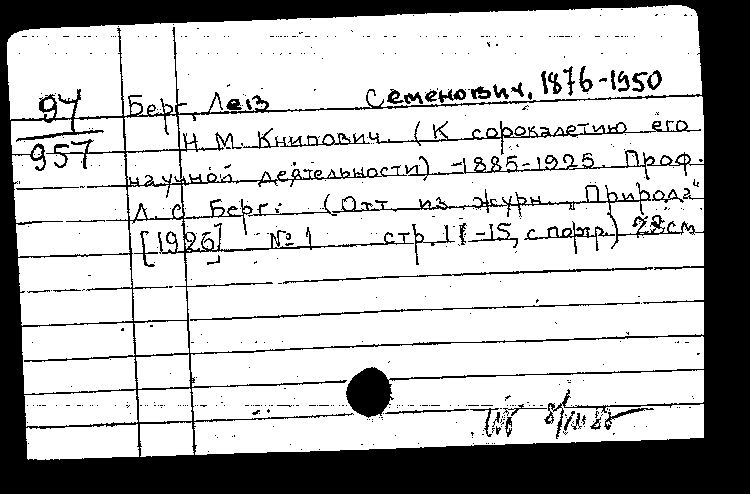 94
957
Берг, Лев Семенович, 1876-1950
Н. М. Книпович. (К сорокалетию его
научной деятельности) -1885-1925. Проф.
Л. С Берг: (Отт. из журн. „Природа"
[1926] № 1 стр. 11-15, с портр.) 22см